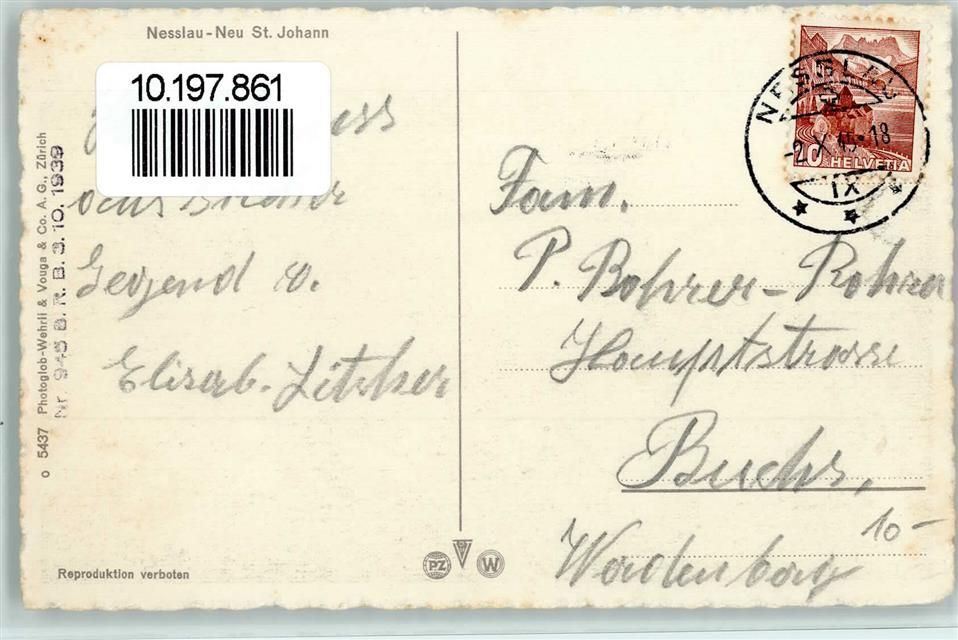 Nesslau-Neu St. Johann
10.197.861
Gegend v.
Elisab. Litscher
o 5437 Photoglob-Wehrli & Vouga & Co. A. G., Zürich
Nr. 945 B. R. B. 3. 10. 1939
Reproduktion verboten
PZ
W
NESSLAU
-2. X. 45-18
IX
20 HELVETIA
Fam.
P. Bohrer-Rohrer
Hauptstrasse
Buchs,
Werdenberg
10-